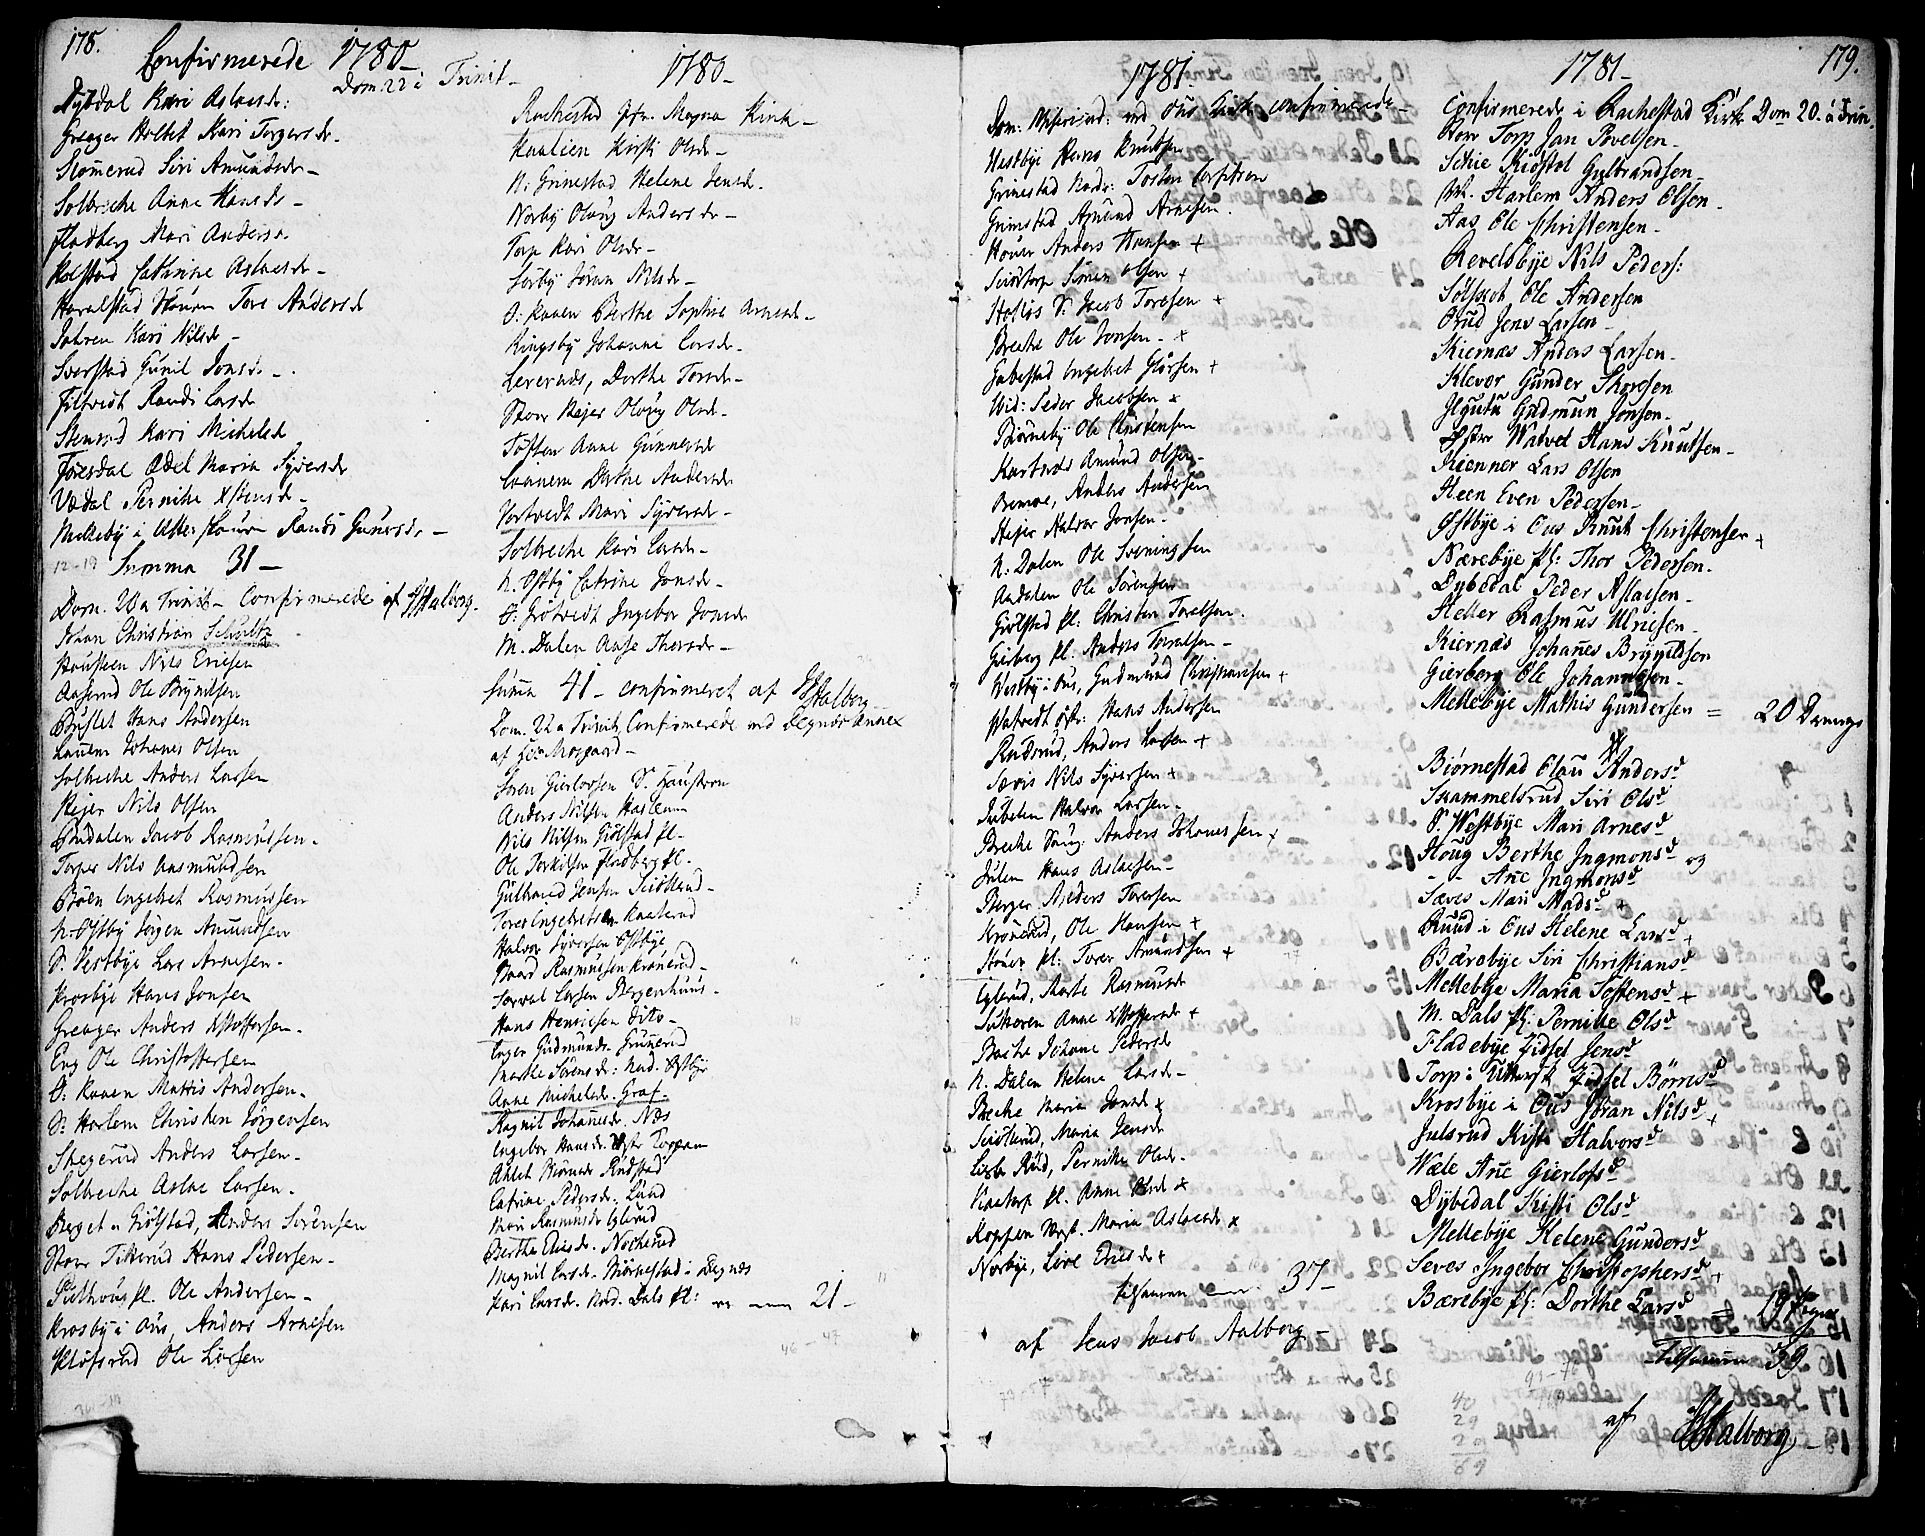 178.
Confirmerede 1780
Dom 22 a Trinit
Dybdal Kari Aslacsdr:
Greager Holtet Kari Torgersdr.
Slomerud Siri Amundsdr
Solbreche Anne Hansdr
Fladberg Mari Andersd.
Holstad Catrine Aslacsdr
Haralstad Houen Tore Andersdr
Jahren Kari Nilsdr
Sverstad Gunil Jonsdr
Filtvedt Randi Larsdr
Stensrud Kari Michelsdr
Foxsdal Edel Maria Syversdr
Vedal Pernille Xstensdr
Mellebÿ i Randi Gunersdr
12-19 Summa 31
Dom. 20 a Trinit Confirmerede af JJAalborg.
Johan Christian Schultz
Housteen Nils Ericsen
Aaserud Ole Brynilsen
Bruslet Hans Andersen
Lauem Johanes Olsen
Solbreche Anders Larsen
Hejer Nils Olsen
Brudalen Jacob Rasmussen.
Torper Nils Aasmundsen
Bröen Ingebret Rasmussen
N. Ostby Jörgen Amundsen
S. Vestbye Lars Arnesen.
Krosbye Hans Jonsen
Greager Anders Xstoffersen.
Eng Ole Christoffersen
O: Kaaen Mattis Andersen.
S: Harlem Christen Jörgensen
Skegerud Anders Larsen.
Solbreche Aslac Larsen.
Berget u Giölstad, Anders Sörensen
Stoor Tikkerud Hans Pedersen.
Pilthuus pl. Ole Andersen
Krosbÿ i Ous, Anders Arnesen
Klöfsrud Ole Larsen
1780
Rachestad Kirk
Kaalien Kirsti Olsdr
N: Grinestad Helene Jensdr.
Norby Oloug Andersdr
Torp Kari Olsdr
Sörby Jöran Nilsdr
O: Kaaen Berthe Sophia Arnesdr
Ringsby Johanne Larsdr.
Levernæs, Dorthe Toresdr
Stoor Hejer Oloug Olsdr.
Toften Anne Gunnersdr
Lauem Dorthe Andersdr
Vortvedt Mari Syversdr
Solbreche Kari Larsdr
N. Ostby Catrine Jonsdr
O. Grötvedt Ingebor Jonsdr
M. Dalen Aase Thorsdr
Suma 41 confirmeret af JJAalborg
Dom. 22 a Trinit, Confirmerede ved Degnæs Annex
af Hr: Mosgaard
Soren Gierlovsen S. Haustveen
Anders Nilsen Harlemm
Nils Nilsen Giölstad pl
Ole Torkilsen Fladberg pl.
Gulbrand Jensen Seiötlund
Torer Ingebretsen Kaaterud
Halvor Syversen Ostbye
Baard Rasmussen Kronerud
Torval Larsen Bergenhuus.
Hans Henricsen dito
Inger Gudmunds. Grunerud
Marthe Sörensdr: Nord. Ostbye
Anne Michelsdr. Graf
Ragnil Johanesdr. Næs
Ingebor Hansdr. Toppam
Ahlet Biörnsdr Rudstad
Catrine Pedersdr. Lund
Mari Rasmusdr Eglerud
Berthe Ericsdr. Nocherud
Magnil Larsdr. Biörnestad i Degnæs
Kari Larsdr. Nord. Dals pl: 21
46 - 47
1781
Dom: ved Ous Kirk confirmerede
Westbye Hans Knudsen
Grinestad Nordr: Tosten
Grinstad Amund Arnesen.
Houer Anders Hansen +
Seiötorp Simen Olsen +
Hollös S. Jacob Toresen +
Breche Ole Jonsen x
Gabestad Ingebret Glörsen +
Wid: Peder Jacobsen x
Biörneby Ole Christensen
Kortnæs Amund Olsen
Bemoe, Anders Andersen
Hejer Halvor Jonsen.
N: Dalen Ole Sveningsen
Aadalen Ole Sörensen
Giölstad pl: Christen Toralsen.
Gieberg pl. Anders Toralsen
Westby i Ous, Gudmund Christensen +
Watvedt Östr: Hans Andersen
Rudsrud, Anders Larsen +
Særis Nils Syversen +
Jubelen Halvor Larsen
Breche Anders Johanessen +
Julen Hans Aslacsen
Berger Anders Toresen
Kronerud, Ole Hansen +
Houer pl: Torer Amundsen +
Eglerud, Marte Rasmusdr
Sutteren Anne Xstoffersdr +
Boche Johane Pedersdr
N. Dalen Helene Larsdr
Breche Maria Jonsdr x
Seiötlund, Maria Jensdr
Lisbe Rud, Pernille Olsdr.
Kaatorp pl. Anne Olsdr x
Koppen Maria Aslacsdr x
Norbye, Live Ericsdr +
tilsamen 37
af Jens Jacob Aalborg
1781
179.
Confirmerede i Rachestad Kirk Dom 20. a Trin.
Stoer Torp Jan Povelsen
Schie Kiöstol Gulbrandsen
Harlem Anders Olsen
Aas Ole Christensen
Revelsbye Nils Peders:
Solfsrot Ole Andersen
Brud Jens Larsen
Kiernæs Anders Larsen
Klever Gunder Skovsen
Gudmun Jonsen
Watvet Hans Knudsen
Kienner Lars Olsen
Heen Even Pedersen
Østbye i Ous Knut Christensen +
Nærebye pl: Thor Pedersen.
Dybedal Peder Aslacsen
Heller Rasmus Ulricsen
Kiernæs Johanes Brynildsen
Gierberg Ole Johannesen
Mellebye Mathis Gundersen = 20 Drenge
Biørnestad Olau Andersd
Skammelsrud Siri Olsd
S. Westbye Mari Arnesd
Houg Berthe Ingmonsd og
- - Ane Ingmonsd
Sæves Mari Madsd +
Ruud i Ous Helene Larsd +
Bærebye Siri Christiansd
Mellebye Maria Tostensd +
M. Dals pl: Pernille Olsd
Fladebye Zidsel Jensd
Torp i Zidsel Börresd
Krosbye i Ous Jöran Nilsd +
Julsrud Kisti Halvorsd
Wæle Ane Gierlofsd
Dybedal Kisti Olsd
Mellebye Helene Gundersd
Seves Ingebor Christophersd +
Bærebye pl: Dorthe Larsd = 19 Piger
Tilsamen 39
af JJAalborg
40
29
20
89